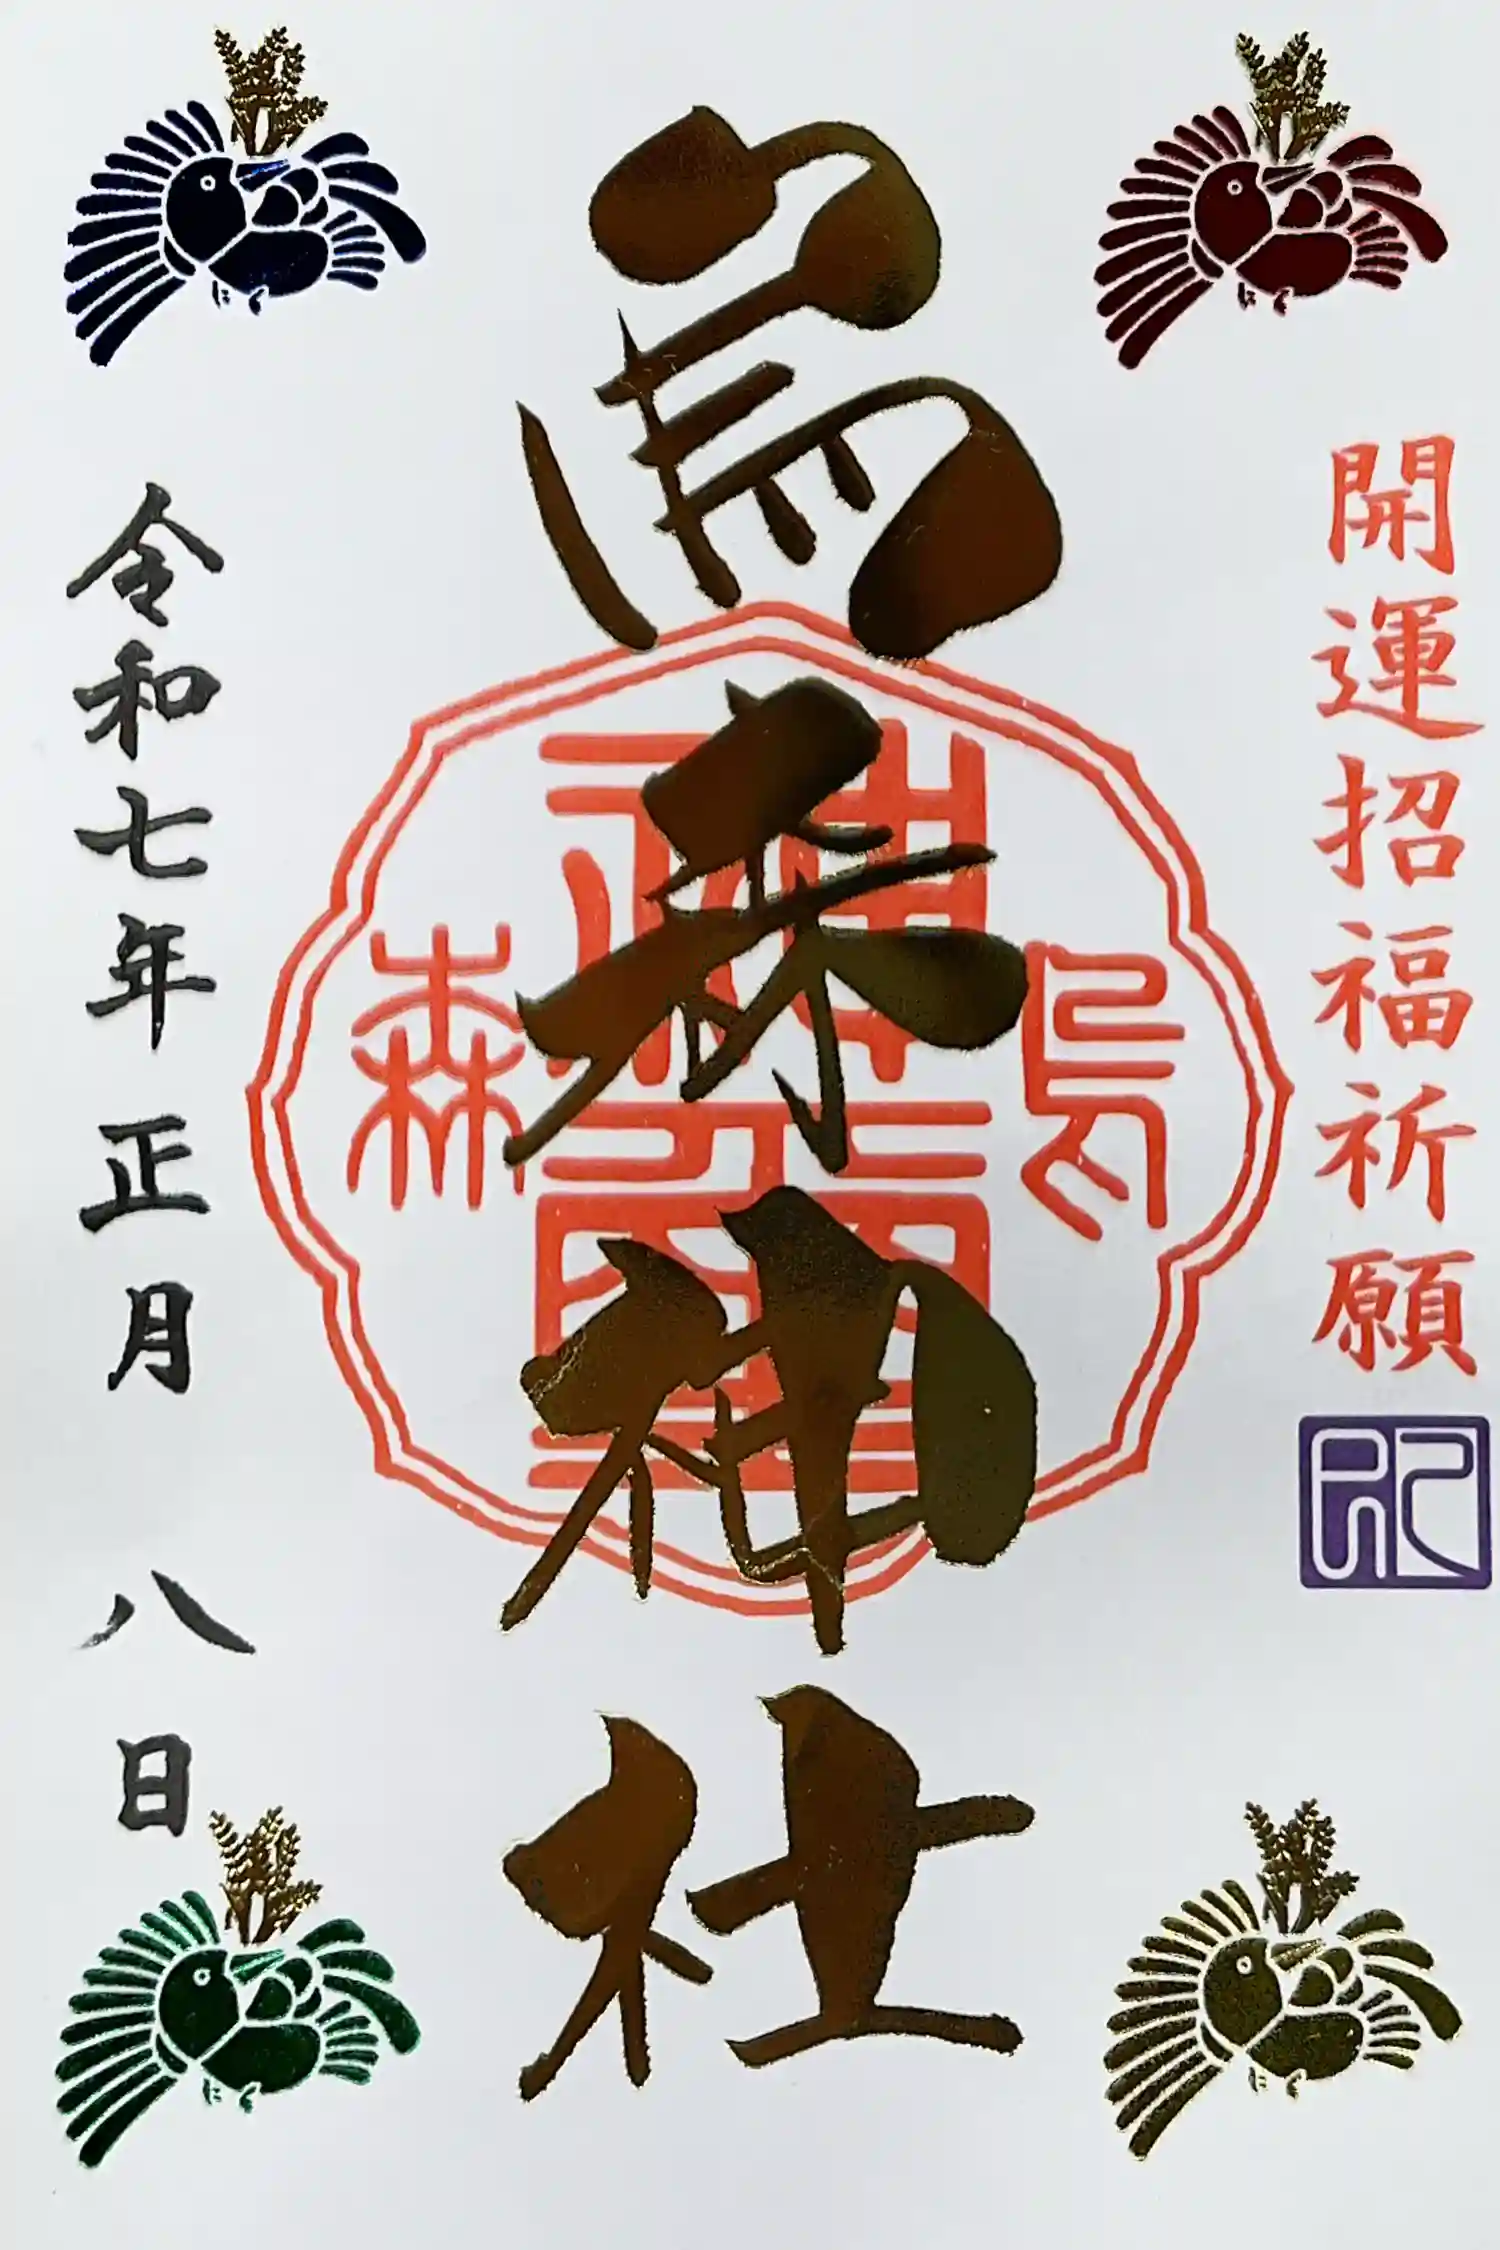 開運招福祈願
烏森神社
烏
神璽
森
令和七年正月八日